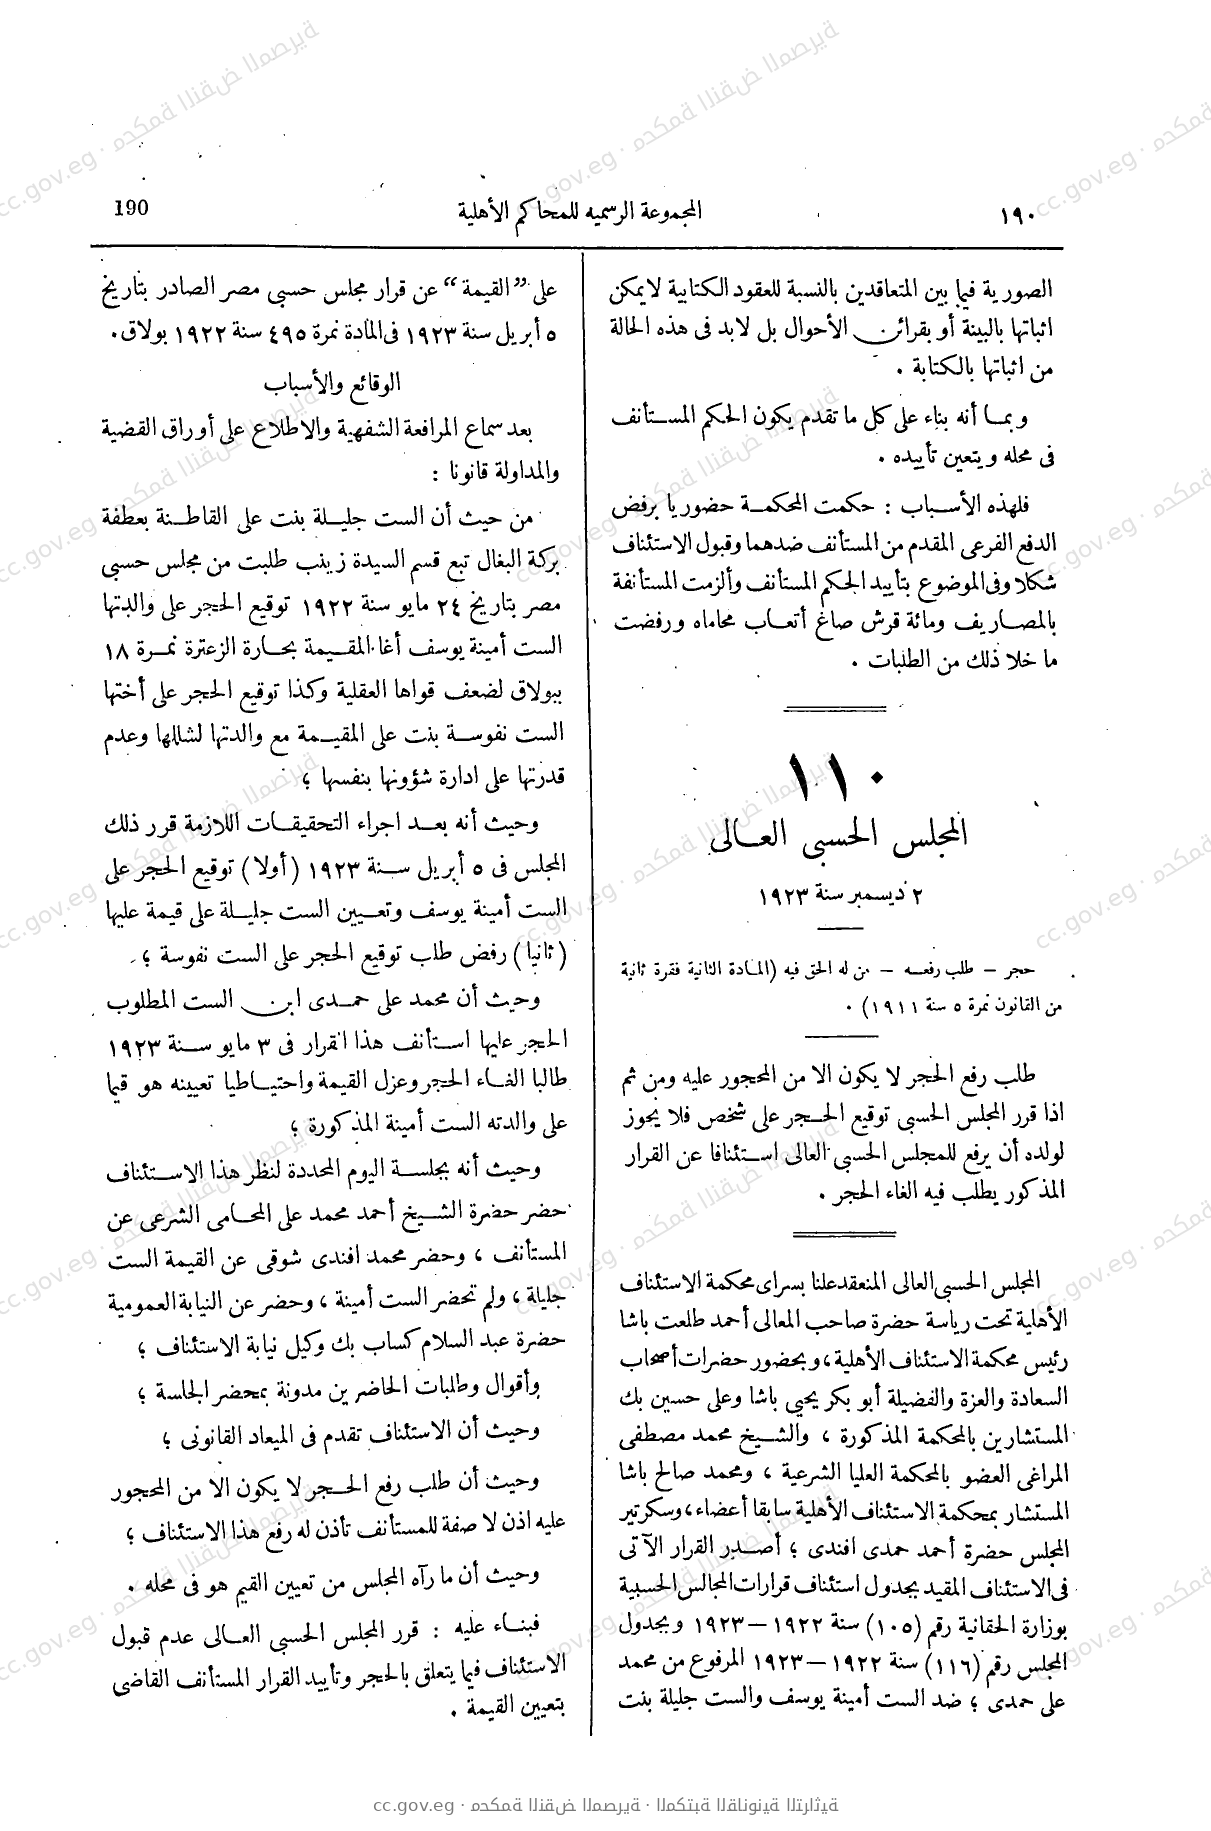 ١٩٠
المجموعة الرسميه للمحاكم الأهلية
190
الصورية فيما بين المتعاقدين بالنسبة للعقود الكتابية لايمكن
اثباتها بالبينة أو بقرائن الأحوال بل لابد فى هذه الحالة
من اثباتها بالكتابة ٠
وبمـا أنه بناء على كل ما تقدم يكون الحكم المستأنف
فى محله ويتعين تأييده ٠
فلهذه الأسباب : حكمت المحكمـة حضوريا برفض
الدفع الفرعى المقدم من المستأنف ضدهما وقبول الاستئناف
شكلا وفى الموضوع بتأييد الحكم المستأنف وألزمت المستأنفة
بالمصاريف ومائة قرش صاغ أتعاب محاماه ورفضت
ما خلا ذلك من الطلبات ٠
١١٠
المجلس الحسبى العالى
٢ ديسمبر سنة ١٩٢٣
حجر – طلب رفعـه – من له الحق فيه (المادة الثانية فقرة ثانية
من القانون نمرة ٥ سنة ١٩١١) ٠
طلب رفع الحجر لا يكون الا من المحجور عليه ومن ثم
اذا قرر المجلس الحسبى توقيع الحجر على شخص فلا يجوز
لولده أن يرفع للمجلس الحسبى العالى استئنافا عن القرار
المذكور يطلب فيه الغاء الحجر ٠
المجلس الحسبى العالى المنعقد علنا بسراى محكمة الاستئناف
الأهلية تحت رياسة حضرة صاحب المعالى أحمد طلعت باشا
رئيس محكمة الاستئناف الأهلية ، وبحضور حضرات أصحاب
السعادة والعزة والفضيلة أبو بكر يحيى باشا وعلى حسين بك
المستشارين بالمحكمة المذكورة ، والشيخ محمد مصطفى
المراغى العضو بالمحكمة العليا الشرعية ، ومحمد صالح باشا
المستشار بمحكمة الاستئناف الأهلية سابقا أعضاء ، وسكرتير
المجلس حضرة أحمد حمدى افندى ؛ أصدر القرار الآتى
فى الاستئناف المقيد بجدول استئناف قرارات المجالس الحسبية
بوزارة الحقانية رقم (١٠٥) سنة ١٩٢٢ – ١٩٢٣ وبجدول
المجلس رقم (١١٦) سنة ١٩٢٢ – ١٩٢٣ المرفوع من محمد
على حمدى ؛ ضد الست أمينة يوسف والست جليلة بنت
على ”القيمة“ عن قرار مجلس حسبى مصر الصادر بتاريخ
٥ أبريل سنة ١٩٢٣ فى المادة نمرة ٤٩٥ سنة ١٩٢٢ بولاق ٠
الوقائع والأسباب
بعد سماع المرافعة الشفهية والاطلاع على أوراق القضية
والمداولة قانونا :
من حيث أن الست جليلة بنت على القاطنة بعطفة
بركة البغال تبع قسم السيدة زينب طلبت من مجلس حسبى
مصر بتاريخ ٢٤ مايو سنة ١٩٢٢ توقيع الحجر على والدتها
الست أمينة يوسف أغا المقيمة بحارة الزعترة نمرة ١٨
ببولاق لضعف قواها العقلية وكذا توقيع الحجر على أختها
الست نفوسة بنت على المقيمة مع والدتها لشللها وعدم
قدرتها على ادارة شؤونها بنفسها ؛
وحيث أنه بعد اجراء التحقيقات اللازمة قرر ذلك
المجلس فى ٥ أبريل سنة ١٩٢٣ (أولا) توقيع الحجر على
الست أمينة يوسف وتعيين الست جليلة على قيمة عليها
(ثانيا) رفض طلب توقيع الحجر على الست نفوسة ؛
وحيث أن محمد على حمدى ابن الست المطلوب
الحجر عليها استأنف هذا القرار فى ٣ مايو سنة ١٩٢٣
طالبا الغاء الحجر وعزل القيمة واحتياطيا تعيينه هو قيما
على والدته الست أمينة المذكورة ؛
وحيث أنه بجلسة اليوم المحددة لنظر هذا الاستئناف
حضر حضرة الشيخ أحمد محمد على المحامى الشرعى عن
المستأنف ، وحضر محمد افندى شوقى عن القيمة الست
جليلة ، ولم تحضر الست أمينة ، وحضر عن النيابة العمومية
حضرة عبد السلام كساب بك وكيل نيابة الاستئناف ؛
وأقوال وطلبات الحاضرين مدونة بمحضر الجلسة ؛
وحيث أن الاستئناف تقدم فى الميعاد القانونى ؛
وحيث أن طلب رفع الحجر لا يكون الا من المحجور
عليه اذن لا صفة للمستأنف تأذن له رفع هذا الاستئناف ؛
وحيث أن ما رآه المجلس من تعيين القيم هو فى محله ٠
فبناء عليه : قرر المجلس الحسبى العالى عدم قبول
الاستئناف فيما يتعلق بالحجر وتأييد القرار المستأنف القاضى
بتعيين القيمة ٠
cc.gov.eg · محكمة النقض المصرية · المكتبة القانونية التراثية